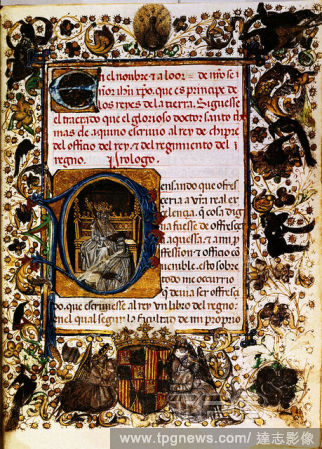 En el nombre τ a loor de iħu xp̃o
que es principe de
los reyes dela tierra. Siguesse
el tractado que el glorioso doctor santo tho
mas de aquino escriuio al rey de chipre
del officio del rey. τ del regimiento del
regno. Prologo.
Pensando que ofres
ceria a vr̃a real ex
celencia. q̃ cosa dig
na fuesse de offrescer
a aquesta. τ a mi pro
fession. τ officio co
todo me occurrio
do. que escriuiesse al rey vn libro del regno.
en el qual segun la facultad de mi proprio
www.tpgnews.com/ 達志影像